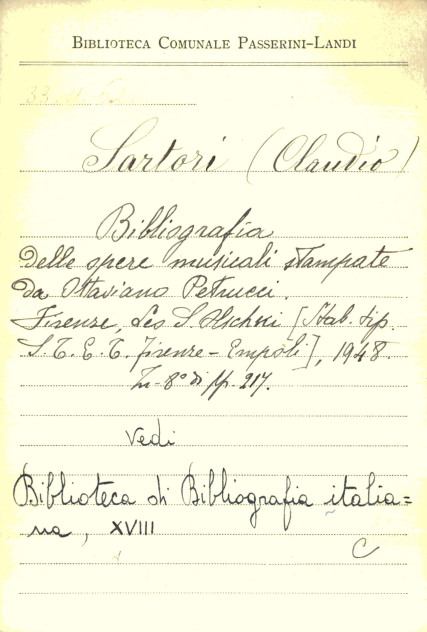 BIBLIOTECA COMUNALE PASSERINI-LANDI
Sartori (Claudio)
Bibliografia
delle opere musicali stampate
da Ottaviano Petrucci.
Firenze, Leo S. Olschki [Stab. tip.
S. T. E. T. Firenze - Empoli], 1948.
In-8° di pp. 217.
Vedi
Biblioteca di Bibliografia italia=
na, XVIII
C